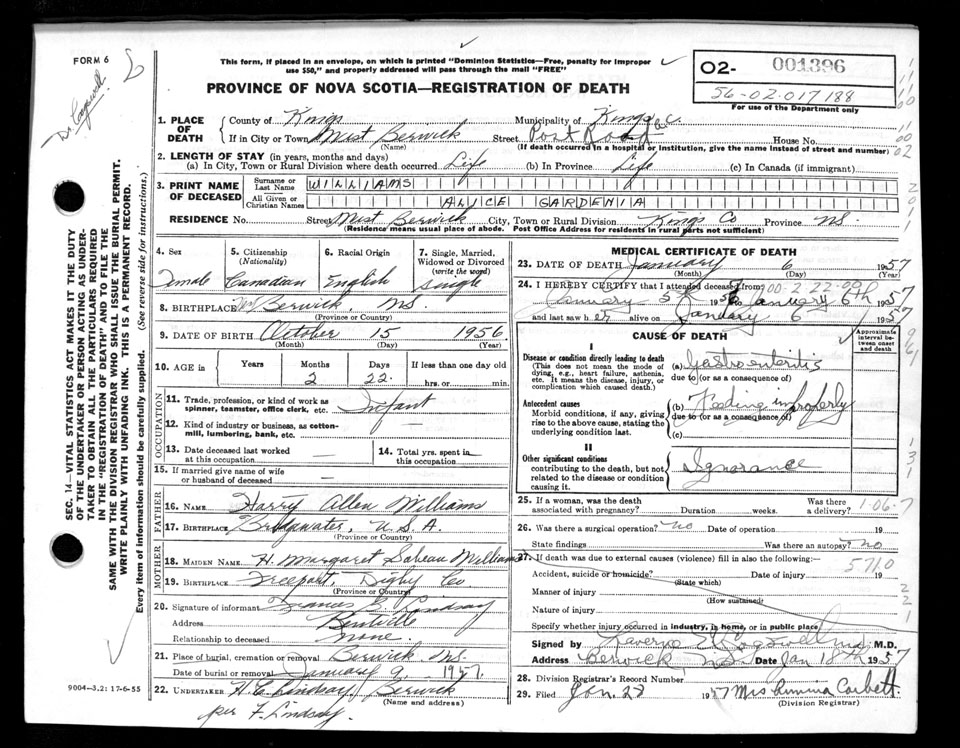 FORM 6
This form, if placed in an envelope, on which is printed "Dominion Statistics—Free, penalty for improper
use $50," and properly addressed will pass through the mail "FREE"
PROVINCE OF NOVA SCOTIA—REGISTRATION OF DEATH
02- 001396
56-02.017188
For use of the Department only
Dr. Cogswell
1. PLACE OF DEATH
County of Kings Municipality of Kings Co.
If in City or Town West Berwick Street Post Road House No.
(Name) (If death occurred in a hospital or institution, give the name instead of street and number)
2. LENGTH OF STAY (in years, months and days)
(a) In City, Town or Rural Division where death occurred Life (b) In Province Life (c) In Canada (if immigrant)
3. PRINT NAME OF DECEASED
Surname or Last Name WILLIAMS
All Given or Christian Names ALICE GARDENIA
RESIDENCE No. Street West Berwick City, Town or Rural Division Kings Co Province NS.
(Residence means usual place of abode. Post Office Address for residents in rural parts not sufficient)
4. Sex Female
5. Citizenship (Nationality) Canadian
6. Racial Origin English
7. Single, Married, Widowed or Divorced (write the word) Single
8. BIRTHPLACE Berwick, NS.
(Province or Country)
9. DATE OF BIRTH October 15 1956
(Month) (Day) (Year)
10. AGE in Years Months 2 Days 22 If less than one day old hrs. or min.
OCCUPATION
11. Trade, profession, or kind of work as spinner, teamster, office clerk, etc. Infant
12. Kind of industry or business, as cotton-mill, lumbering, bank, etc. —
13. Date deceased last worked at this occupation —
14. Total yrs. spent in this occupation —
15. If married give name of wife or husband of deceased —
FATHER
16. NAME Harry Allen Williams
17. BIRTHPLACE Bridgwater, U.S.A.
(Province or Country)
MOTHER
18. MAIDEN NAME H. Margaret Williams
19. BIRTHPLACE Freeport, Digby Co
(Province or Country)
20. Signature of informant Lindsay
Address
Relationship to deceased none.
21. Place of burial, cremation or removal Berwick, NS.
Date of burial or removal January 9, 1957
22. UNDERTAKER H.C. Lindsay, Berwick
(Name and address)
per F. Lindsay.
9004—3.2: 17-6-55
MEDICAL CERTIFICATE OF DEATH
23. DATE OF DEATH January 6 1957
(Month) (Day) (Year)
24. I HEREBY CERTIFY that I attended deceased from
January 5 January 6th 1957
and last saw her alive on January 6 1957
CAUSE OF DEATH
Approximate interval between onset and death
I
Disease or condition directly leading to death
(This does not mean the mode of dying, e.g., heart failure, asthenia, etc. It means the disease, injury, or complication which caused death.)
(a) Gastroenteritis
due to (or as a consequence of)
Antecedent causes
Morbid conditions, if any, giving rise to the above cause, stating the underlying condition last.
(b) Feeding improperly
due to (or as a consequence of)
(c)
II
Other significant conditions
contributing to the death, but not related to the disease or condition causing it.
Ignorance
25. If a woman, was the death associated with pregnancy? Duration weeks. Was there a delivery?
26. Was there a surgical operation? no Date of operation 19
State findings Was there an autopsy? no
27. If death was due to external causes (violence) fill in also the following: 5710
Accident, suicide or homicide? Date of injury 19
(State which)
Manner of injury
(How sustained)
Nature of injury
Specify whether injury occurred in industry, in home, or in public place
Signed by M.D.
Address Berwick, N.S. Date Jan 18th 1957
28. Division Registrar's Record Number
29. Filed Jan. 28 1957 Mrs Corbett
(Division Registrar)
SEC. 14—VITAL STATISTICS ACT MAKES IT THE DUTY
OF THE UNDERTAKER OR PERSON ACTING AS UNDER-
TAKER TO OBTAIN ALL THE PARTICULARS REQUIRED
IN THE "REGISTRATION OF DEATH" AND TO FILE THE
SAME WITH THE DIVISION REGISTRAR WHO SHALL ISSUE THE BURIAL PERMIT.
WRITE PLAINLY WITH UNFADING INK. THIS IS A PERMANENT RECORD.
Every item of information should be carefully supplied. (See reverse side for instructions.)